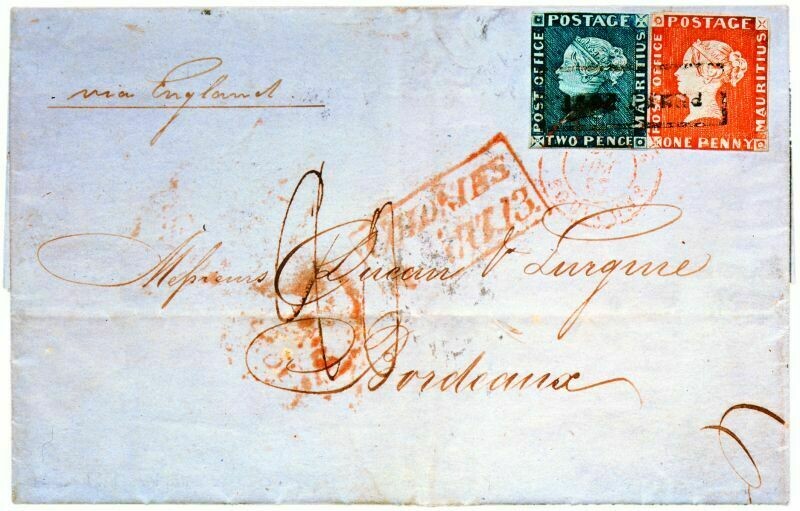 POSTAGE
POST OFFICE
MAURITIUS
TWO PENCE
POSTAGE
POST OFFICE
MAURITIUS
ONE PENNY
via England
COLONIES
ART. 13.
Messieurs Ducan & Lurguie
Bordeaux